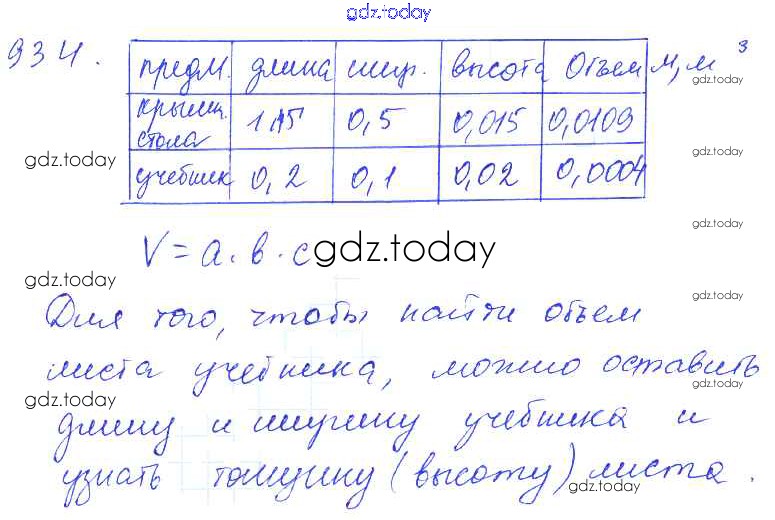 gdz.today
934.
предм. длина шир. высота Объем м, м³
gdz.today
крышк. стола 1,15 0,5 0,015 0,0109
gdz.today
учебник 0,2 0,1 0,02 0,0004
gdz.today
V = a . в . с gdz.today
gdz.today
gdz.today
gdz.today
Для того, чтобы найти объем
листа учебника, можно оставить
gdz.today
gdz.today
длину и ширину учебника и
узнать толщину (высоту) листа.
gdz.today